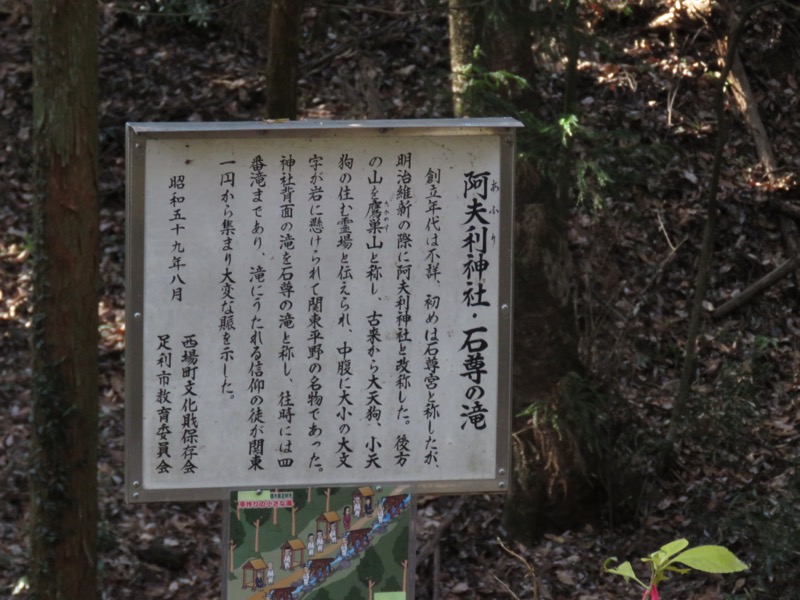 阿夫利神社・石尊の滝
あふり
創立年代は不詳、初めは石尊宮と称したが、
明治維新の際に阿夫利神社と改称した。後方
の山を鷹巣山と称し、古来から大天狗、小天
たかのす
狗の住む霊場と伝えられ、中腹に大小の大文
字が岩に懸けられて関東平野の名物であった。
神社背面の滝を石尊の滝と称し、往時には四
番滝まであり、滝にうたれる信仰の徒が関東
一円から集まり大変な賑を示した。
昭和五十九年八月
西場町文化戝保存会
足利市教育委員会